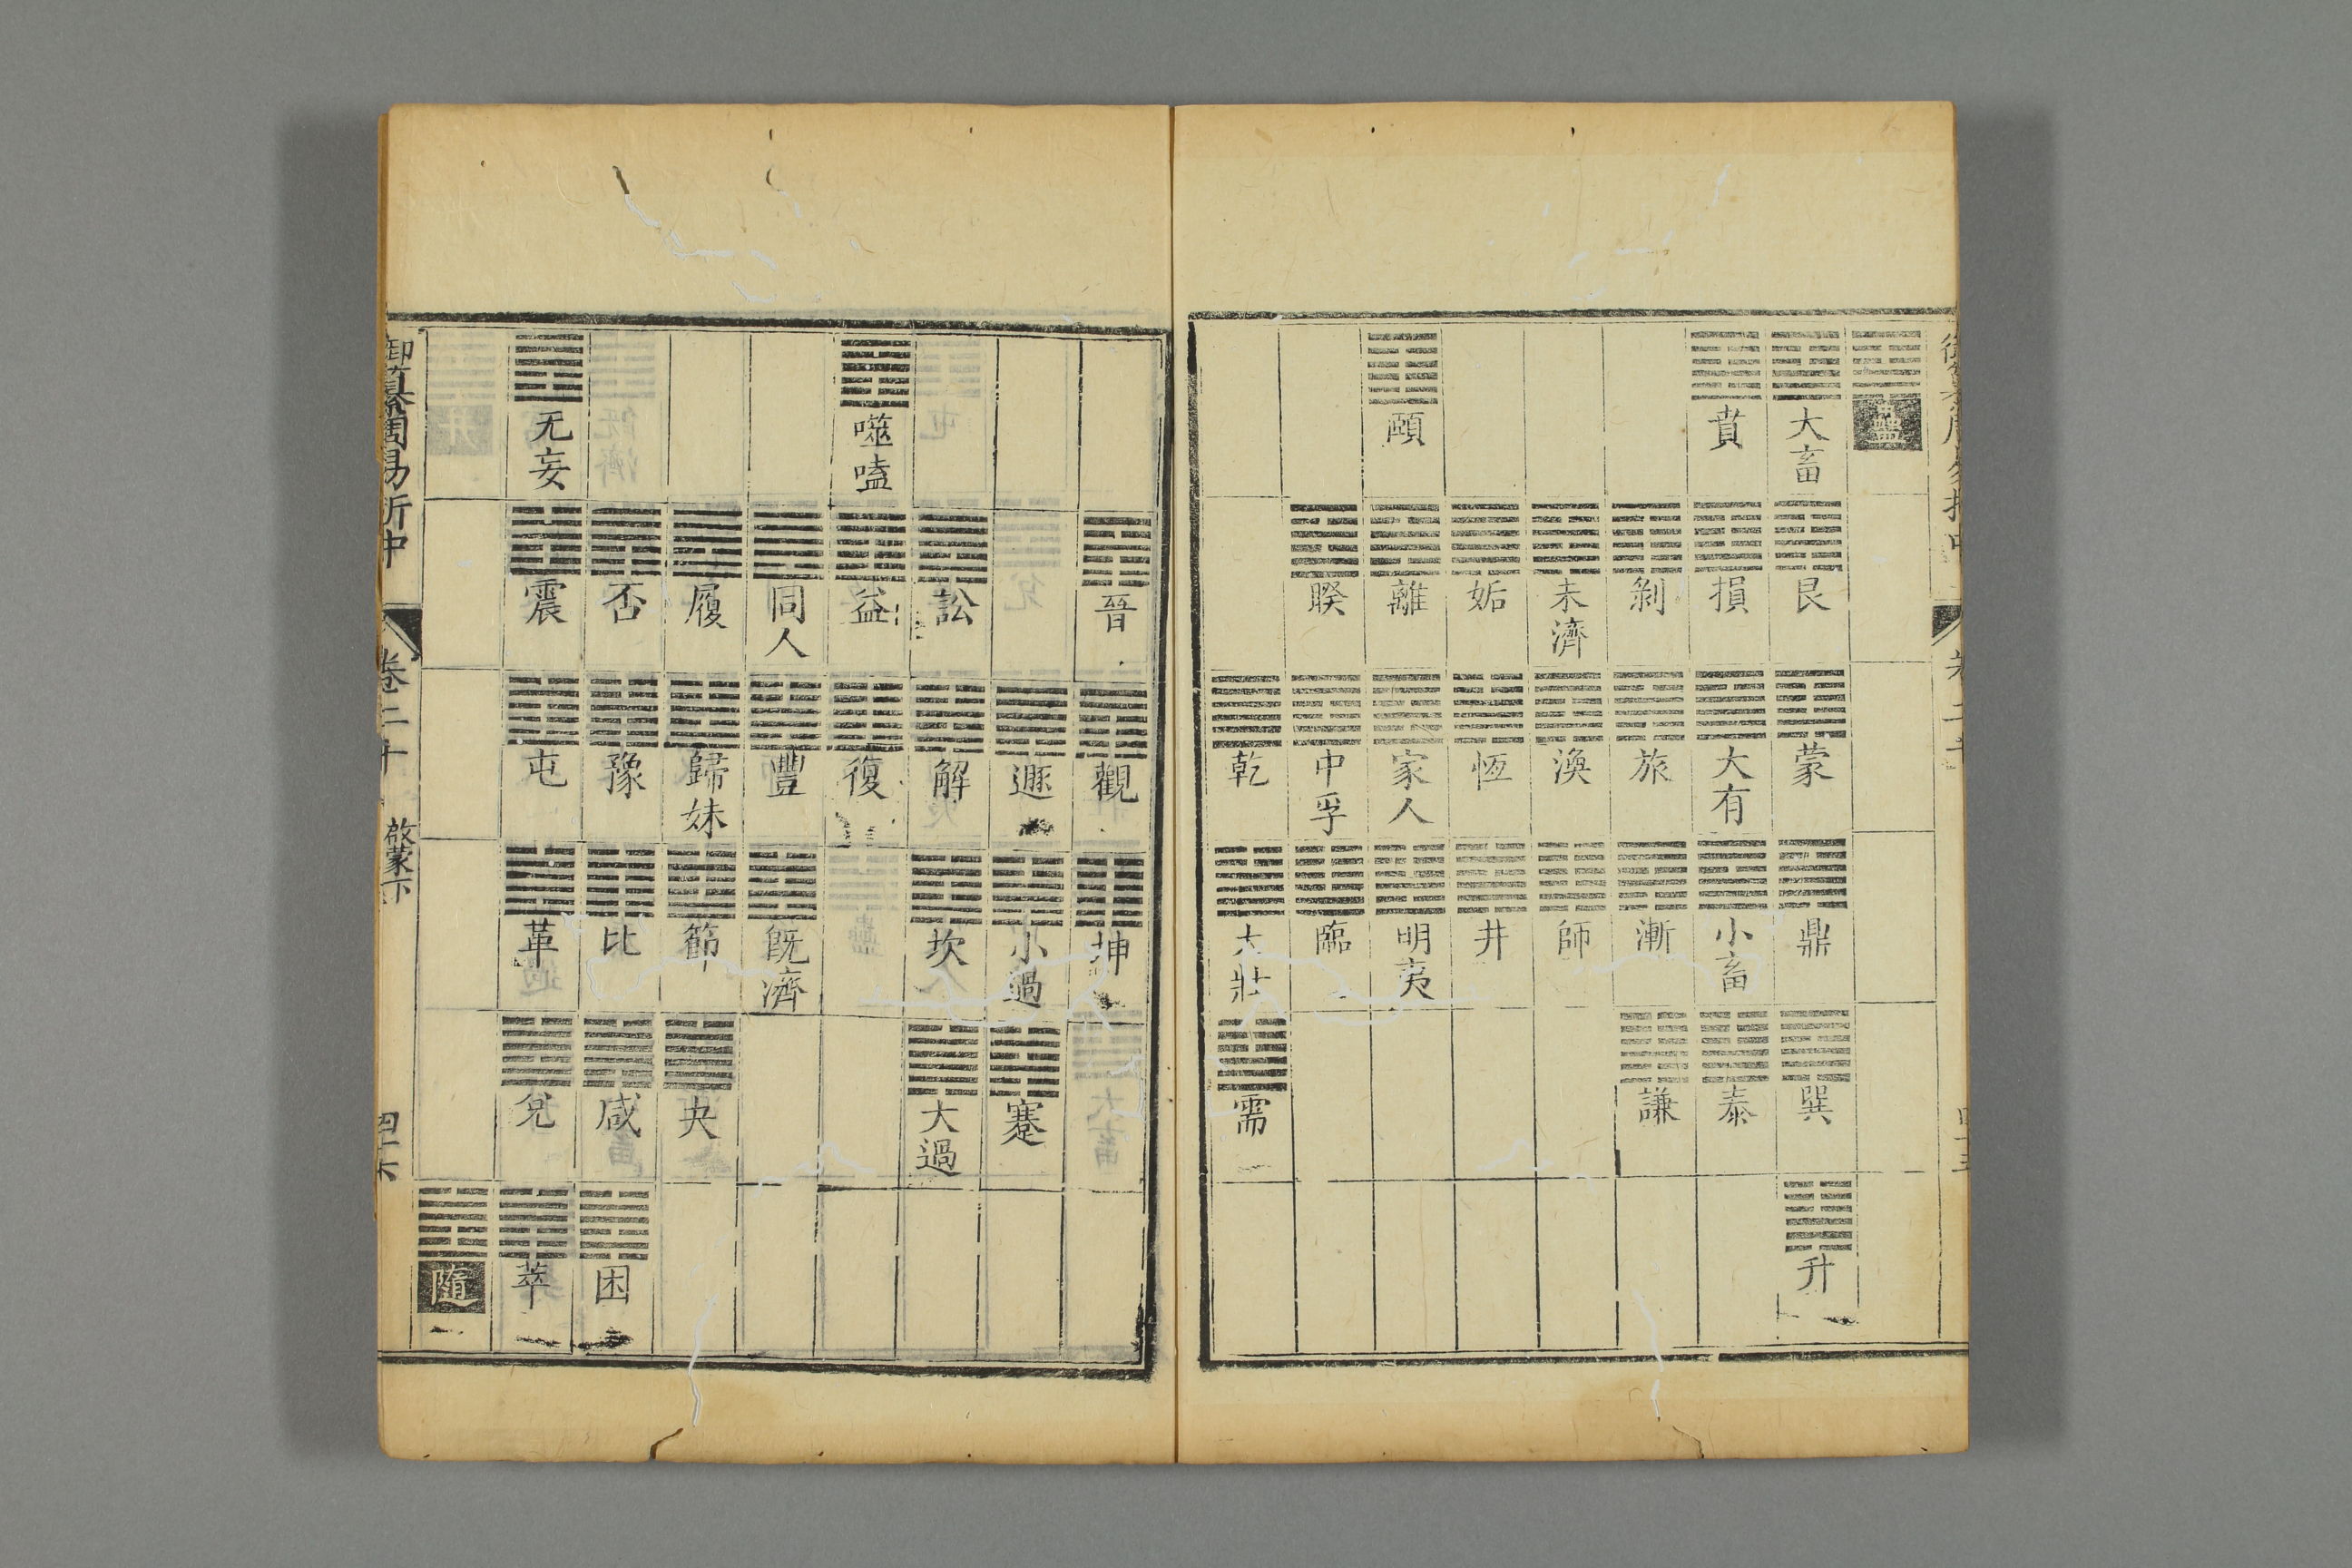 蠱
大畜 艮 蒙 鼎 巽 升
賁 損 大有 小畜 泰
剝 旅 漸 謙
未濟 渙 師
姤 恆 井
頤 離 家人 明夷
睽 中孚 臨
乾 大壯 需
晉 觀 坤
遯 小過 蹇
訟 解 坎 大過
噬嗑 益 復
同人 豐 既濟
履 歸妹 節 夬
否 豫 比 咸 困
无妄 震 屯 革 兌 萃
隨
御纂周易折中 卷二十 啟蒙下 四十六